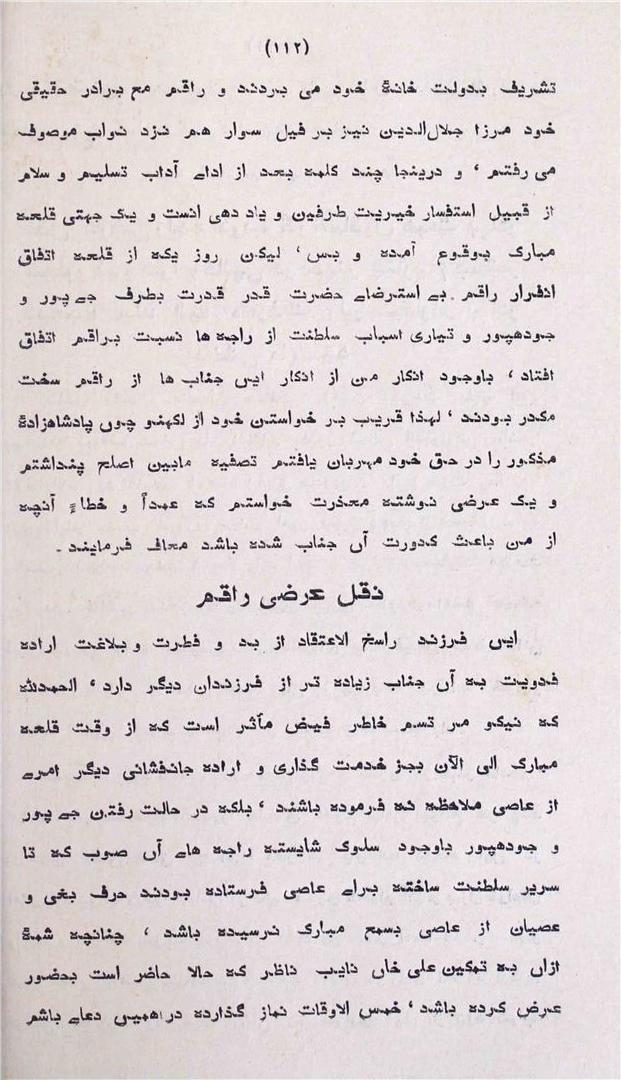 (۱۱۲)
تشریف بدولت خانهٔ خود می بردند و راقم مع برادر حقیقی
خود مرزا جلال‌الدین نیز بر فیل سوار هم نزد نواب موصوف
می رفتم ، و درینجا چند کلمه بعد از ادای آداب تسلیم و سلام
از قبیل استفسار خیریت طرفین و یاد دهی انست و یک جهتی قلعه
مبارک بوقوع آمده و بس ، لیکن روز یکه از قلعه اتفاق
انفرار راقم بے استرضاے حضرت قدر قدرت بطرف جے پور و
جودھپور و تیاری اسباب سلطنت از راجه ها نسبت براقم اتفاق
افتاد ، باوجود انکار من از انکار ایں جناب ها از راقم سخت
مکدر بودند ، لہذا قریب بر خواستن خود از لکھنو چوں پادشاهزادهٔ
مذکور را در حق خود مہربان یافتم تصفیه مابین اصلح پنداشتم
و یک عرضی نوشته معذرت خواستم که عمداً و خطاءً آنچه
از من باعث کدورت آں جناب شده باشد معاف فرمایند ۔
نقل عرضی راقم
ایں فرزند راسخ الاعتقاد از بد و فطرت و بلاغت اراده
فدویت به آں جناب زیاده تر از فرزندان دیگر دارد ، الحمدللہ
که نیکو مر تسم خاطر فیض مآثر است که از وقت قلعه
مبارک الی الآن بجز خدمت گذاری و اراده جانفشانی دیگر امرے
از عاصی ملاحظه نه فرموده باشند ، بلکه در حالت رفتن جے پور
و جودھپور باوجود سلوک شایسته راجه هاے آں صوب که تا
سریر سلطنت ساخته براے عاصی فرستاده بودند حرف بغی و
عصیان از عاصی بسمع مبارک نرسیده باشد ، چنانچه شمهٔ
ازاں به تمکین علی خاں نایب ناظر که حالا حاضر است بحضور
عرض کرده باشد ، خمس الاوقات نماز گذارده در اهمیں دعاے باشم